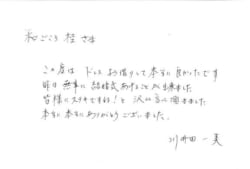 この度は ドレスお借りして本当に良かったです
昨日 無事に 結婚式あげることが出来ました
皆様にステキですね！と 沢山言って頂きました
本当に本当にありがとうございました。
川井田 一美